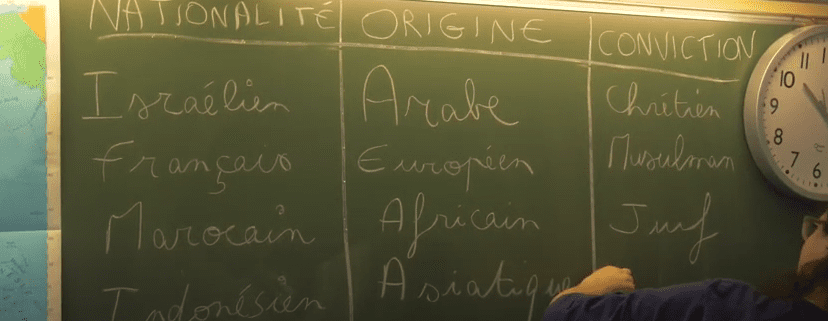 NATIONALITÉ ORIGINE CONVICTION
Israélien Arabe Chrétien
Français Européen Musulman
Marocain Africain Juif
Indonésien Asiatique
10 11
9
8
7 6